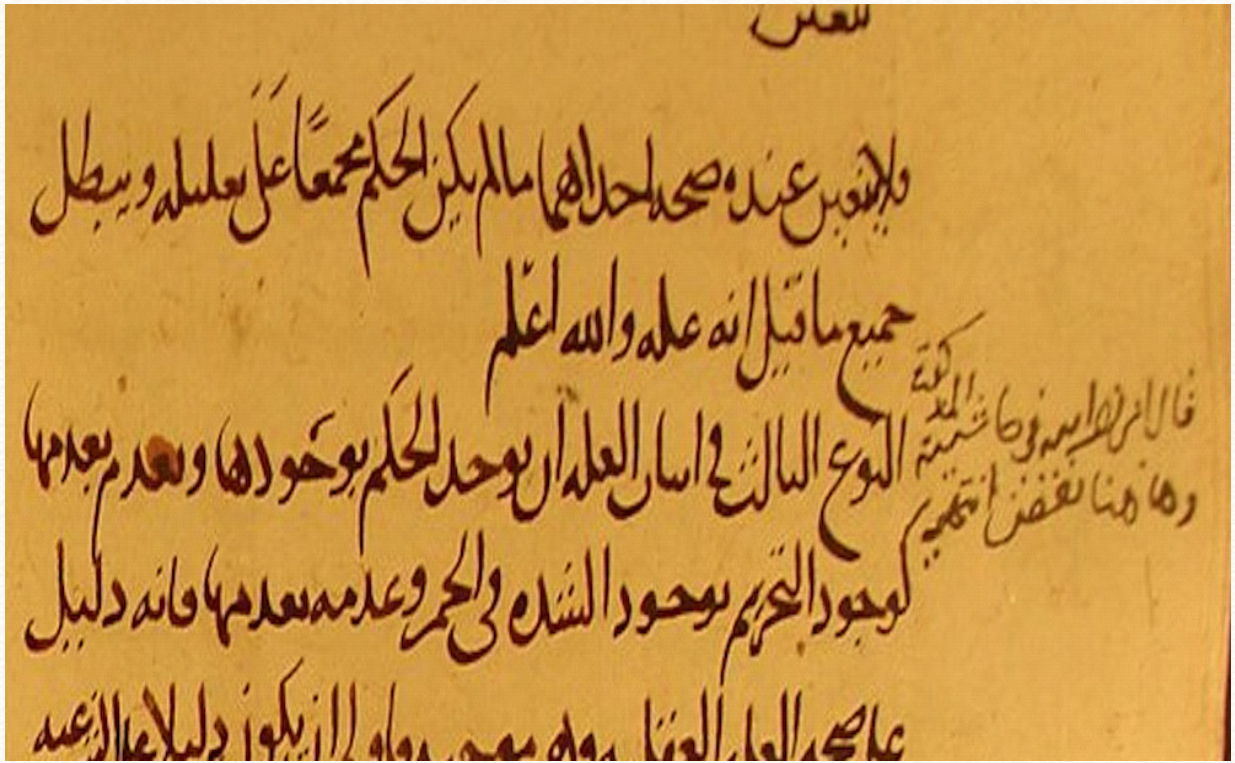 للعلتين
فلا يتعين عنده صحة احداهما ما لم يكن الحكم مجمعًا على تعليله ويبطل
جميع ما قيل انه علة والله اعلم
النوع الثالث في اثبات العلة ان يوجد الحكم بوجودها ويعدم بعدمها
كوجود التحريم بوجود الشدة في الخمر وعدمه بعدمها فانه دليل
على صحة العلة العقلية وهي موجبة فاولى ان يكون دليلا على الشرعية
قال ابن
في حاشية
المذكورة
وها هنا نقص انتهى